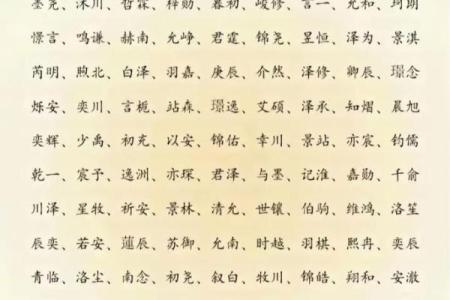 墨尧、沐川、哲霖、梓勋、暮初、峻修、言一、允和、珂朗
憬言、鸣谦、赫南、允峥、君霆、锦尧、昱恒、泽为、景淇
芮明、煦北、白泽、羽嘉、庚辰、介然、泽修、卿辰、璟念
烁安、奕川、言栀、站森、璟逸、艾硕、泽承、知熠、晨旭
奕辉、少禹、初充、以安、锦佑、幸川、景站、亦宸、钧儒
乾一、宸予、逸洲、亦琛、君泽、与墨、记淮、嘉勋、千俞
川泽、星牧、祈安、景林、清允、世镶、伯驹、维鸿、洛笙
辰奕、若安、莲辰、苏御、允南、时越、羽棋、熙冉、奕辰
青临、洛尘、南念、初尧、叙白、牧川、锦皓、翔和、安澈